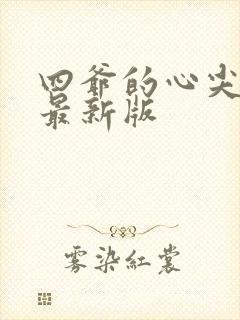 四爷的心尖
最新版
雾染红裳